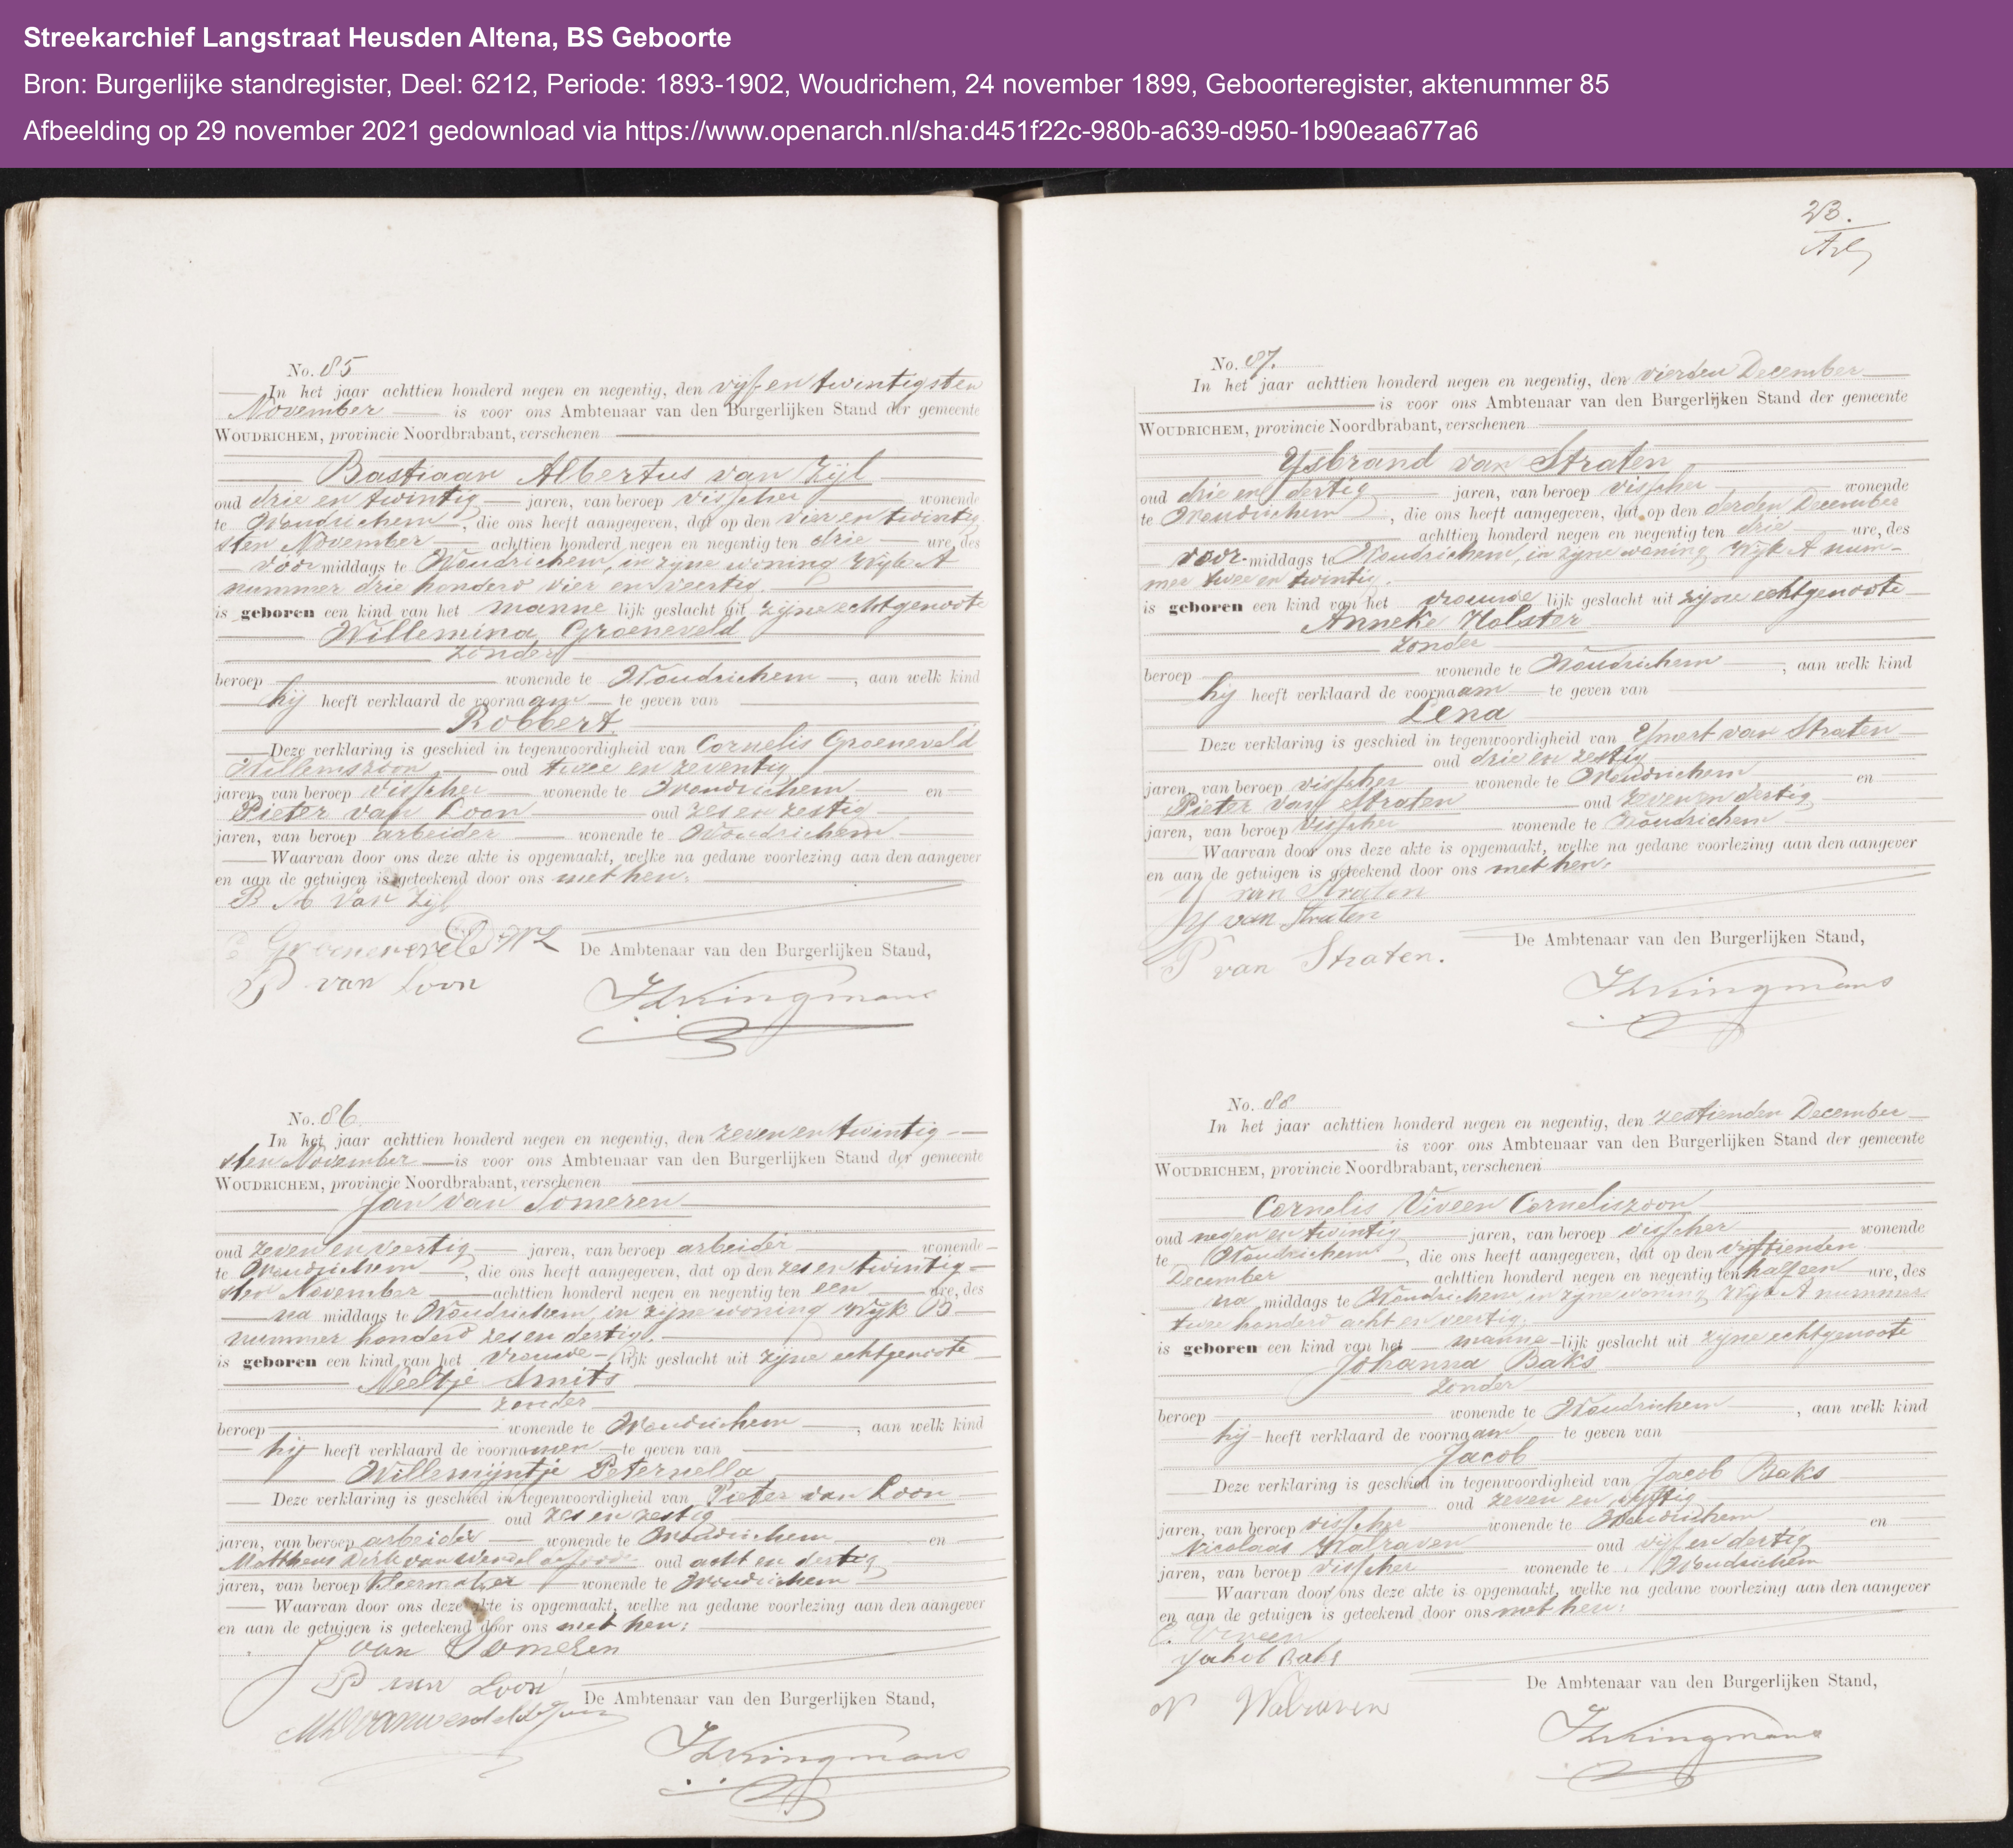 Streekarchief Langstraat Heusden Altena, BS Geboorte
Bron: Burgerlijke standregister, Deel: 6212, Periode: 1893-1902, Woudrichem, 24 november 1899, Geboorteregister, aktenummer 85
Afbeelding op 29 november 2021 gedownload via https://www.openarch.nl/sha:d451f22c-980b-a639-d950-1b90eaa677a6
No. 85
In het jaar achttien honderd negen en negentig, den vijf en twintigsten
November is voor ons Ambtenaar van den Burgerlijken Stand der gemeente
WOUDRICHEM, provincie Noordbrabant, verschenen
Bastiaan Albertus van Zijl
oud drie en twintig jaren, van beroep visscher wonende
te Woudrichem, die ons heeft aangegeven, dat op den vier en twintig
sten November achttien honderd negen en negentig ten drie ure, des
voor middags te Woudrichem, in zijne woning Wijk A
nummer drie honderd vier en veertig.
is geboren een kind van het manne lijk geslacht uit zijne echtgenoote
Willemina Groeneveld
zonder
beroep wonende te Woudrichem, aan welk kind
hij heeft verklaard de voornaam te geven van
Robbert.
Deze verklaring is geschied in tegenwoordigheid van Cornelis Groeneveld
Willemszoon, oud twee en zeventig
jaren, van beroep visscher wonende te Woudrichem en
Pieter van Loon oud zes en zestig
jaren, van beroep arbeider wonende te Woudrichem
Waarvan door ons deze akte is opgemaakt, welke na gedane voorlezing aan den aangever
en aan de getuigen is geteekend door ons met hen.
B A van Zijl
C Groeneveld WZ De Ambtenaar van den Burgerlijken Stand,
P van Loon
Kingmans
No. 86
In het jaar achttien honderd negen en negentig, den zeven en twintig
sten November is voor ons Ambtenaar van den Burgerlijken Stand der gemeente
WOUDRICHEM, provincie Noordbrabant, verschenen
Jan van Someren
oud zeven en veertig jaren, van beroep arbeider wonende
te Woudrichem, die ons heeft aangegeven, dat op den zes en twintig
sten November achttien honderd negen en negentig ten een ure, des
na middags te Woudrichem, in zijne woning Wijk B
nummer honderd zes en dertig.
is geboren een kind van het vrouwe lijk geslacht uit zijne echtgenoote
Neeltje Smits
zonder
beroep wonende te Woudrichem, aan welk kind
hij heeft verklaard de voornamen te geven van
Willemijntje Peternella
Deze verklaring is geschied in tegenwoordigheid van Pieter van Loon
oud zes en zestig
jaren, van beroep arbeider wonende te Woudrichem en
Mattheus Dirk van Wendel de Joode oud acht en dertig
jaren, van beroep kleermaker wonende te Woudrichem
Waarvan door ons deze akte is opgemaakt, welke na gedane voorlezing aan den aangever
en aan de getuigen is geteekend door ons met hen;
J van Someren
P van Loon
De Ambtenaar van den Burgerlijken Stand,
Kingmans
23.
No. 87.
In het jaar achttien honderd negen en negentig, den vierden December
is voor ons Ambtenaar van den Burgerlijken Stand der gemeente
WOUDRICHEM, provincie Noordbrabant, verschenen
Ysbrand van Straten
oud drie en dertig jaren, van beroep visscher wonende
te Woudrichem, die ons heeft aangegeven, dat op den derden December
achttien honderd negen en negentig ten drie ure, des
voor middags te Woudrichem, in zijne woning Wijk A num-
mer twee en twintig.
is geboren een kind van het vrouwe lijk geslacht uit zijne echtgenoote
Anneke Holster
zonder
beroep wonende te Woudrichem, aan welk kind
hij heeft verklaard de voornaam te geven van
Lena
Deze verklaring is geschied in tegenwoordigheid van van Straten
oud drie en zestig
jaren, van beroep visscher wonende te Woudrichem en
Pieter van Straten oud zeven en dertig
jaren, van beroep visscher wonende te Woudrichem
Waarvan door ons deze akte is opgemaakt, welke na gedane voorlezing aan den aangever
en aan de getuigen is geteekend door ons met hen:
Y van Straten
Y van Straten
De Ambtenaar van den Burgerlijken Stand,
P van Straten.
Kingmans
No. 88
In het jaar achttien honderd negen en negentig, den zestienden December
is voor ons Ambtenaar van den Burgerlijken Stand der gemeente
WOUDRICHEM, provincie Noordbrabant, verschenen
Cornelis Viveen Corneliszoon
oud negen en twintig jaren, van beroep visscher wonende
te Woudrichem, die ons heeft aangegeven, dat op den vijftienden
December achttien honderd negen en negentig ten half een ure, des
na middags te Woudrichem, in zijne woning Wijk A nummer
twee honderd acht en veertig.
is geboren een kind van het manne-lijk geslacht uit zijne echtgenoote
Johanna Baks
zonder
beroep wonende te Woudrichem, aan welk kind
hij heeft verklaard de voornaam te geven van
Jacob
Deze verklaring is geschied in tegenwoordigheid van Jacob Baks
oud zeven en vijftig
jaren, van beroep visscher wonende te Woudrichem en
Nicolaas Walraven oud vijf en dertig
jaren, van beroep visscher wonende te Woudrichem
Waarvan door ons deze akte is opgemaakt, welke na gedane voorlezing aan den aangever
en aan de getuigen is geteekend door ons met hen:
C. Viveen
Jakob Baks
De Ambtenaar van den Burgerlijken Stand,
N Walraven
Kingmans